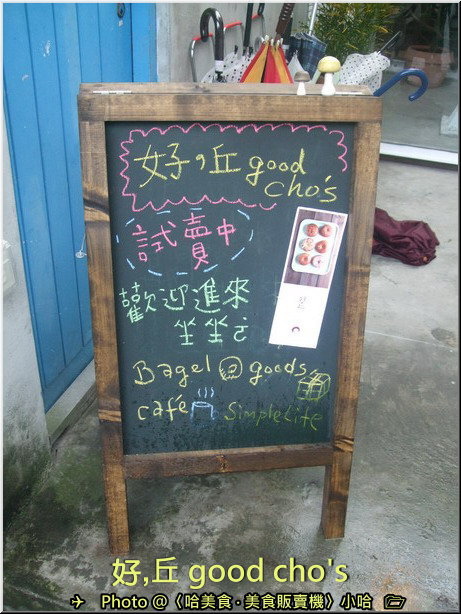 好,丘 good
cho's
試賣中
歡迎進來
坐坐
Bagel @ goods
café
Simple Life
好,丘 good cho's
Photo @〈哈美食·美食販賣機〉小哈